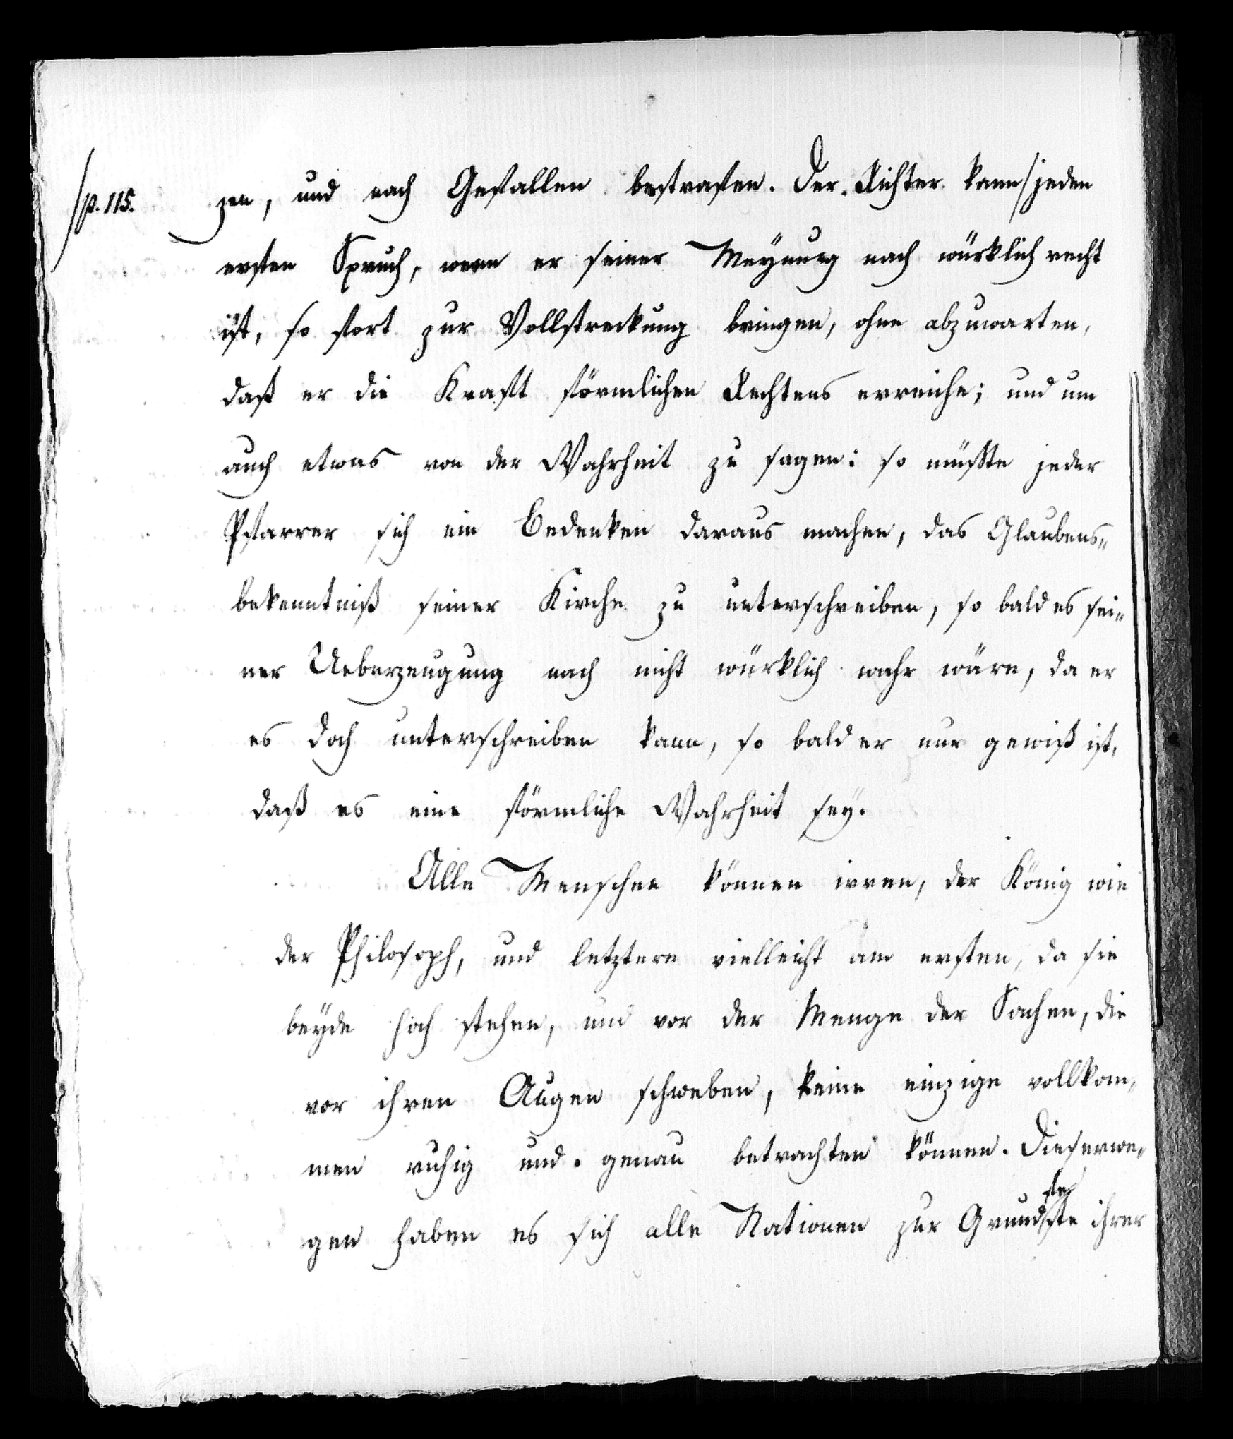 /p. 115.
zen, und nach Gefallen bestrafen. Der Richter kann/jeden
ersten Spruch, wenn er seiner Meynung nach würklich recht
ist, so fort zur Vollstreckung bringen, ohne abzuwarten,
daß er die Kraft förmlichen Rechtens erreiche; und um
auch etwas von der Wahrheit zu sagen: so müßte jeder
Pfarrer sich ein Bedenken daraus machen, das Glaubens-
bekenntniß seiner Kirche zu unterschreiben, so bald es sei-
ner Ueberzeugung nach nicht würklich wahr wäre, da er
es doch unterschreiben kann, so bald er nur gewiß ist,
daß es eine förmliche Wahrheit sey.
Alle Menschen können irren, der König wie
der Philosoph, und letztere vielleicht am ersten, da sie
beyde hoch stehen, und vor der Menge der Sachen, die
vor ihren Augen schweben, keine einzige vollkom-
men ruhig und genau betrachten können. Dieserwe-
gen haben es sich alle Nationen zur Grundfeste ihrer